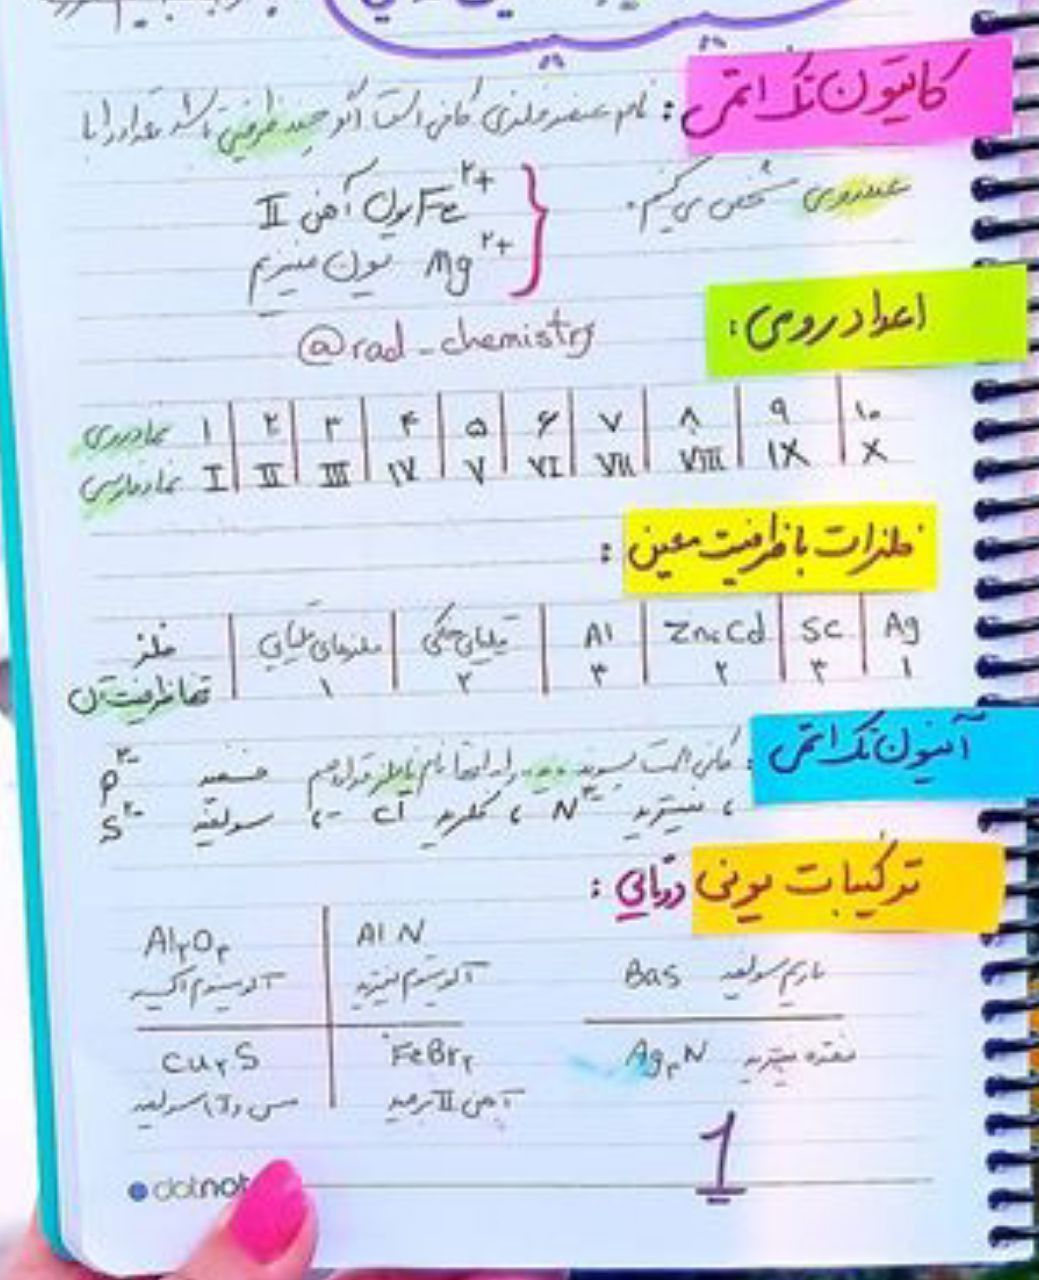 کاتیون تک اتمی : نام عنصر فلزی کافی است اگر چند ظرفیتی باشد تعداد را با
عدد رومی مشخص می کنیم.
Fe²⁺ یون آهن II
Mg²⁺ یون منیزیم
اعداد رومی :
@rad_chemistry
۱ ۲ ۳ ۴ ۵ ۶ ۷ ۸ ۹ ۱۰
نماد فارسی I II III IV V VI VII VIII IX X
فلزات با ظرفیت معین :
فلز فلزهای قلیایی قلیایی خاکی Al Zn، Cd Sc Ag
تنها ظرفیت آن ۱ ۲ ۳ ۲ ۳ ۱
آنیون تک اتمی : کافی است پسوند «ید» را به انتها نام نافلز قرار دهیم
P³⁻ فسفید
، نیترید N³⁻ ، کلرید Cl⁻ ، سولفید S²⁻
ترکیبات یونی دوتایی :
Al₂O₃ AlN BaS باریم سولفید
آلومینیوم اکسید آلومینیوم نیترید
Cu₂S FeBr₂ Ag₃N نقره نیترید
مس (I) سولفید آهن II برمید
1
dotnot